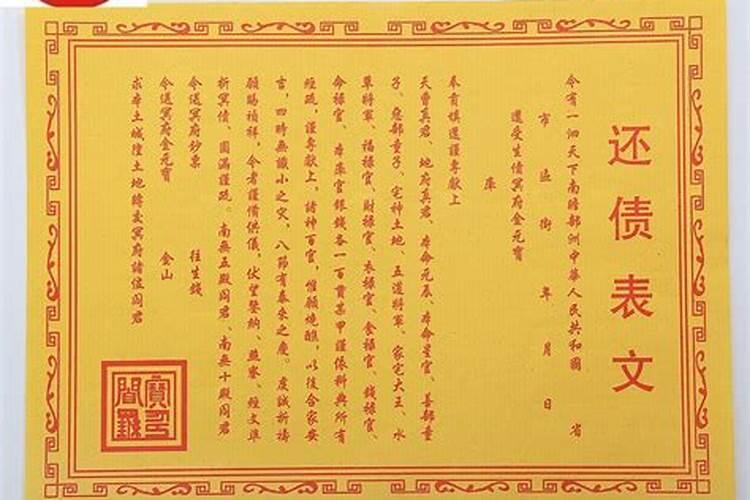 还债表文
今有一泗天下南瞻部洲中華人民共和國 省
市 區 街 年 月 日
還受生債冥府金元寶
庫
奉齎填還謹專獻上
天曹真君、地府真君、本命元辰、本命星官、善部童
子、惡部童子、宅神土地、五道將軍、家宅大王、水
草將軍、福祿官、財祿官、衣祿官、食祿官、錢祿官、
命祿官、本庫官銀錢各一百貫某甲謹依科典所有
經疏，謹專獻上，諸神百官，惟願燒醮，以後合家安
吉，四時無讖小之災，八節有泰來之慶。虔誠祈禱
願賜禎祥，令者謹備供儀，伏望鑒納、照察、經文準
折冥債、圓滿謹疏。南無五殿閻君、南無十殿閻君
今送冥府鈔票 往生錢
今送冥府金元寶 金山
求本土城隍土地轉交冥府諸位閻君